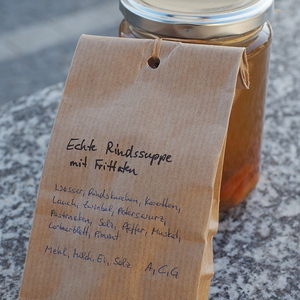 Echte Rindssuppe
mit Frittaten
Wasser, Rindsknochen, Karotten,
Lauch, Zwiebel, Peterswurz,
Pastinaken, Salz, Pfeffer, Muskat,
Lorbeerblatt, Piment
Mehl, Milch, Ei, Salz A, C, G